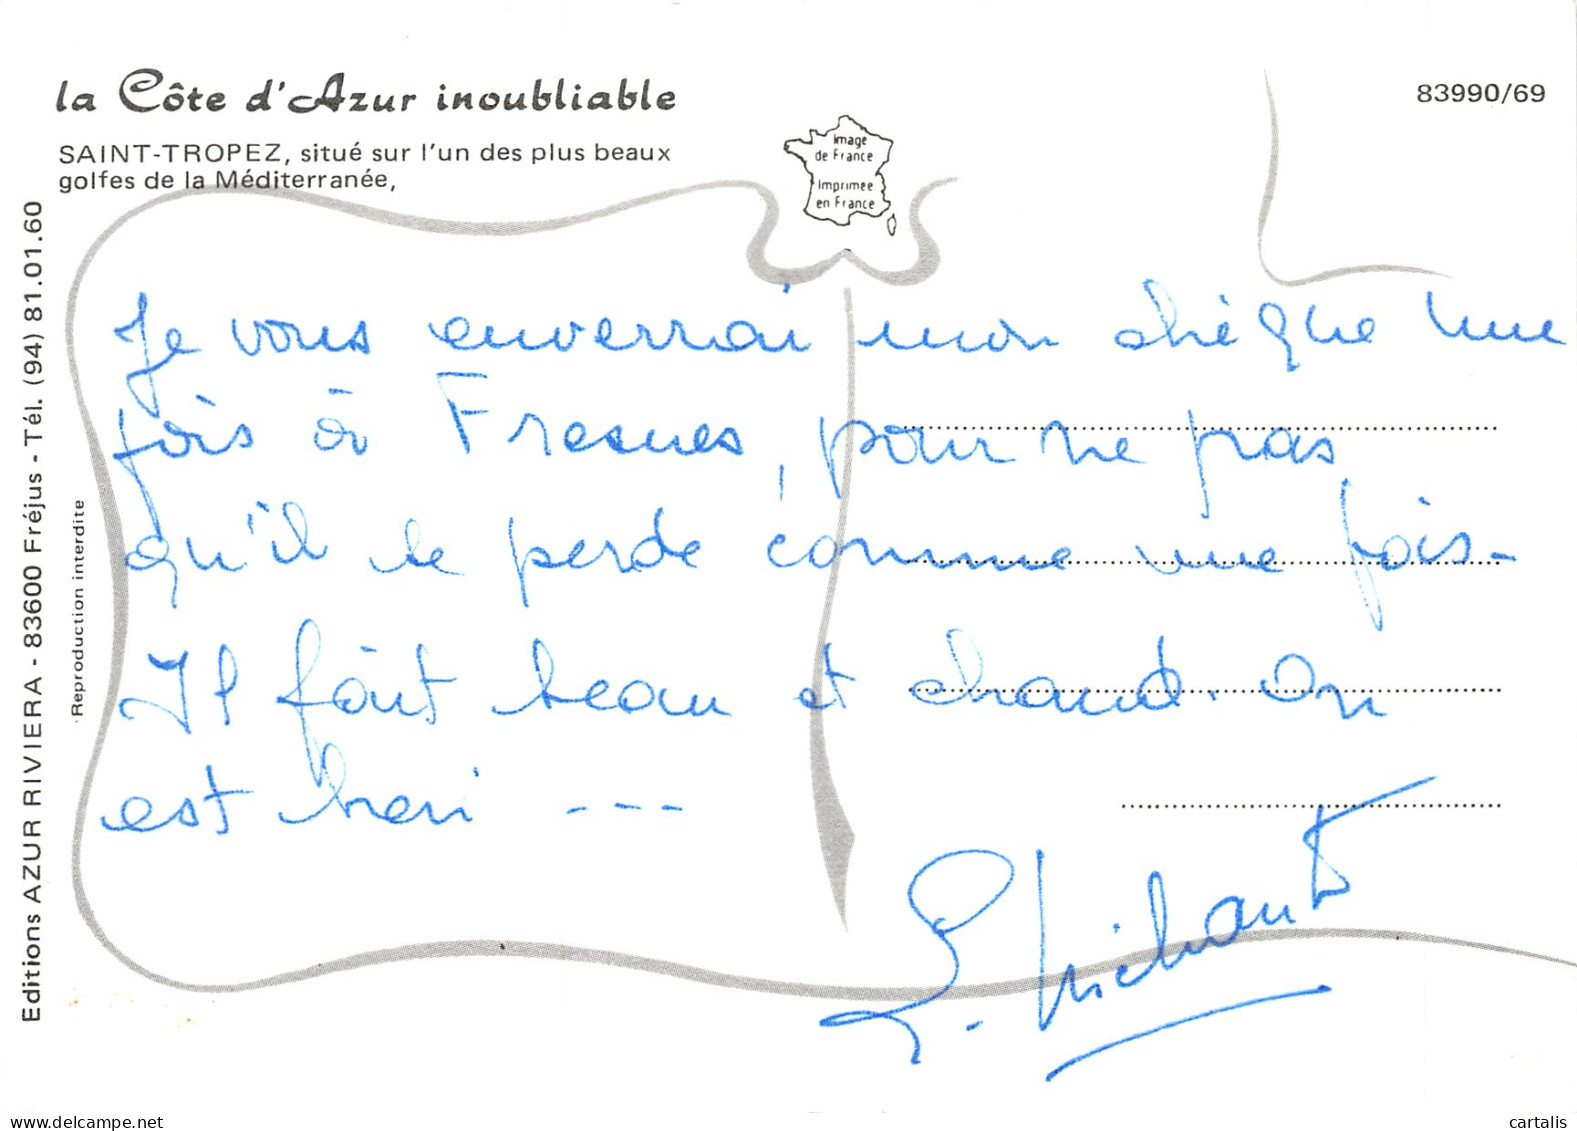 la Côte d'Azur inoubliable
83990/69
SAINT-TROPEZ, situé sur l'un des plus beaux
golfes de la Méditerranée,
Image
de France
Imprimée
en France
Editions AZUR RIVIERA - 83600 Fréjus - Tél. (94) 81.01.60
Reproduction interdite
Je vous enverrai mon chèque une
fois à Fresnes, pour ne pas
qu'il se perde comme une fois-
Il fait beau et chaud. On
est bien ---
www.delcampe.net
cartalis